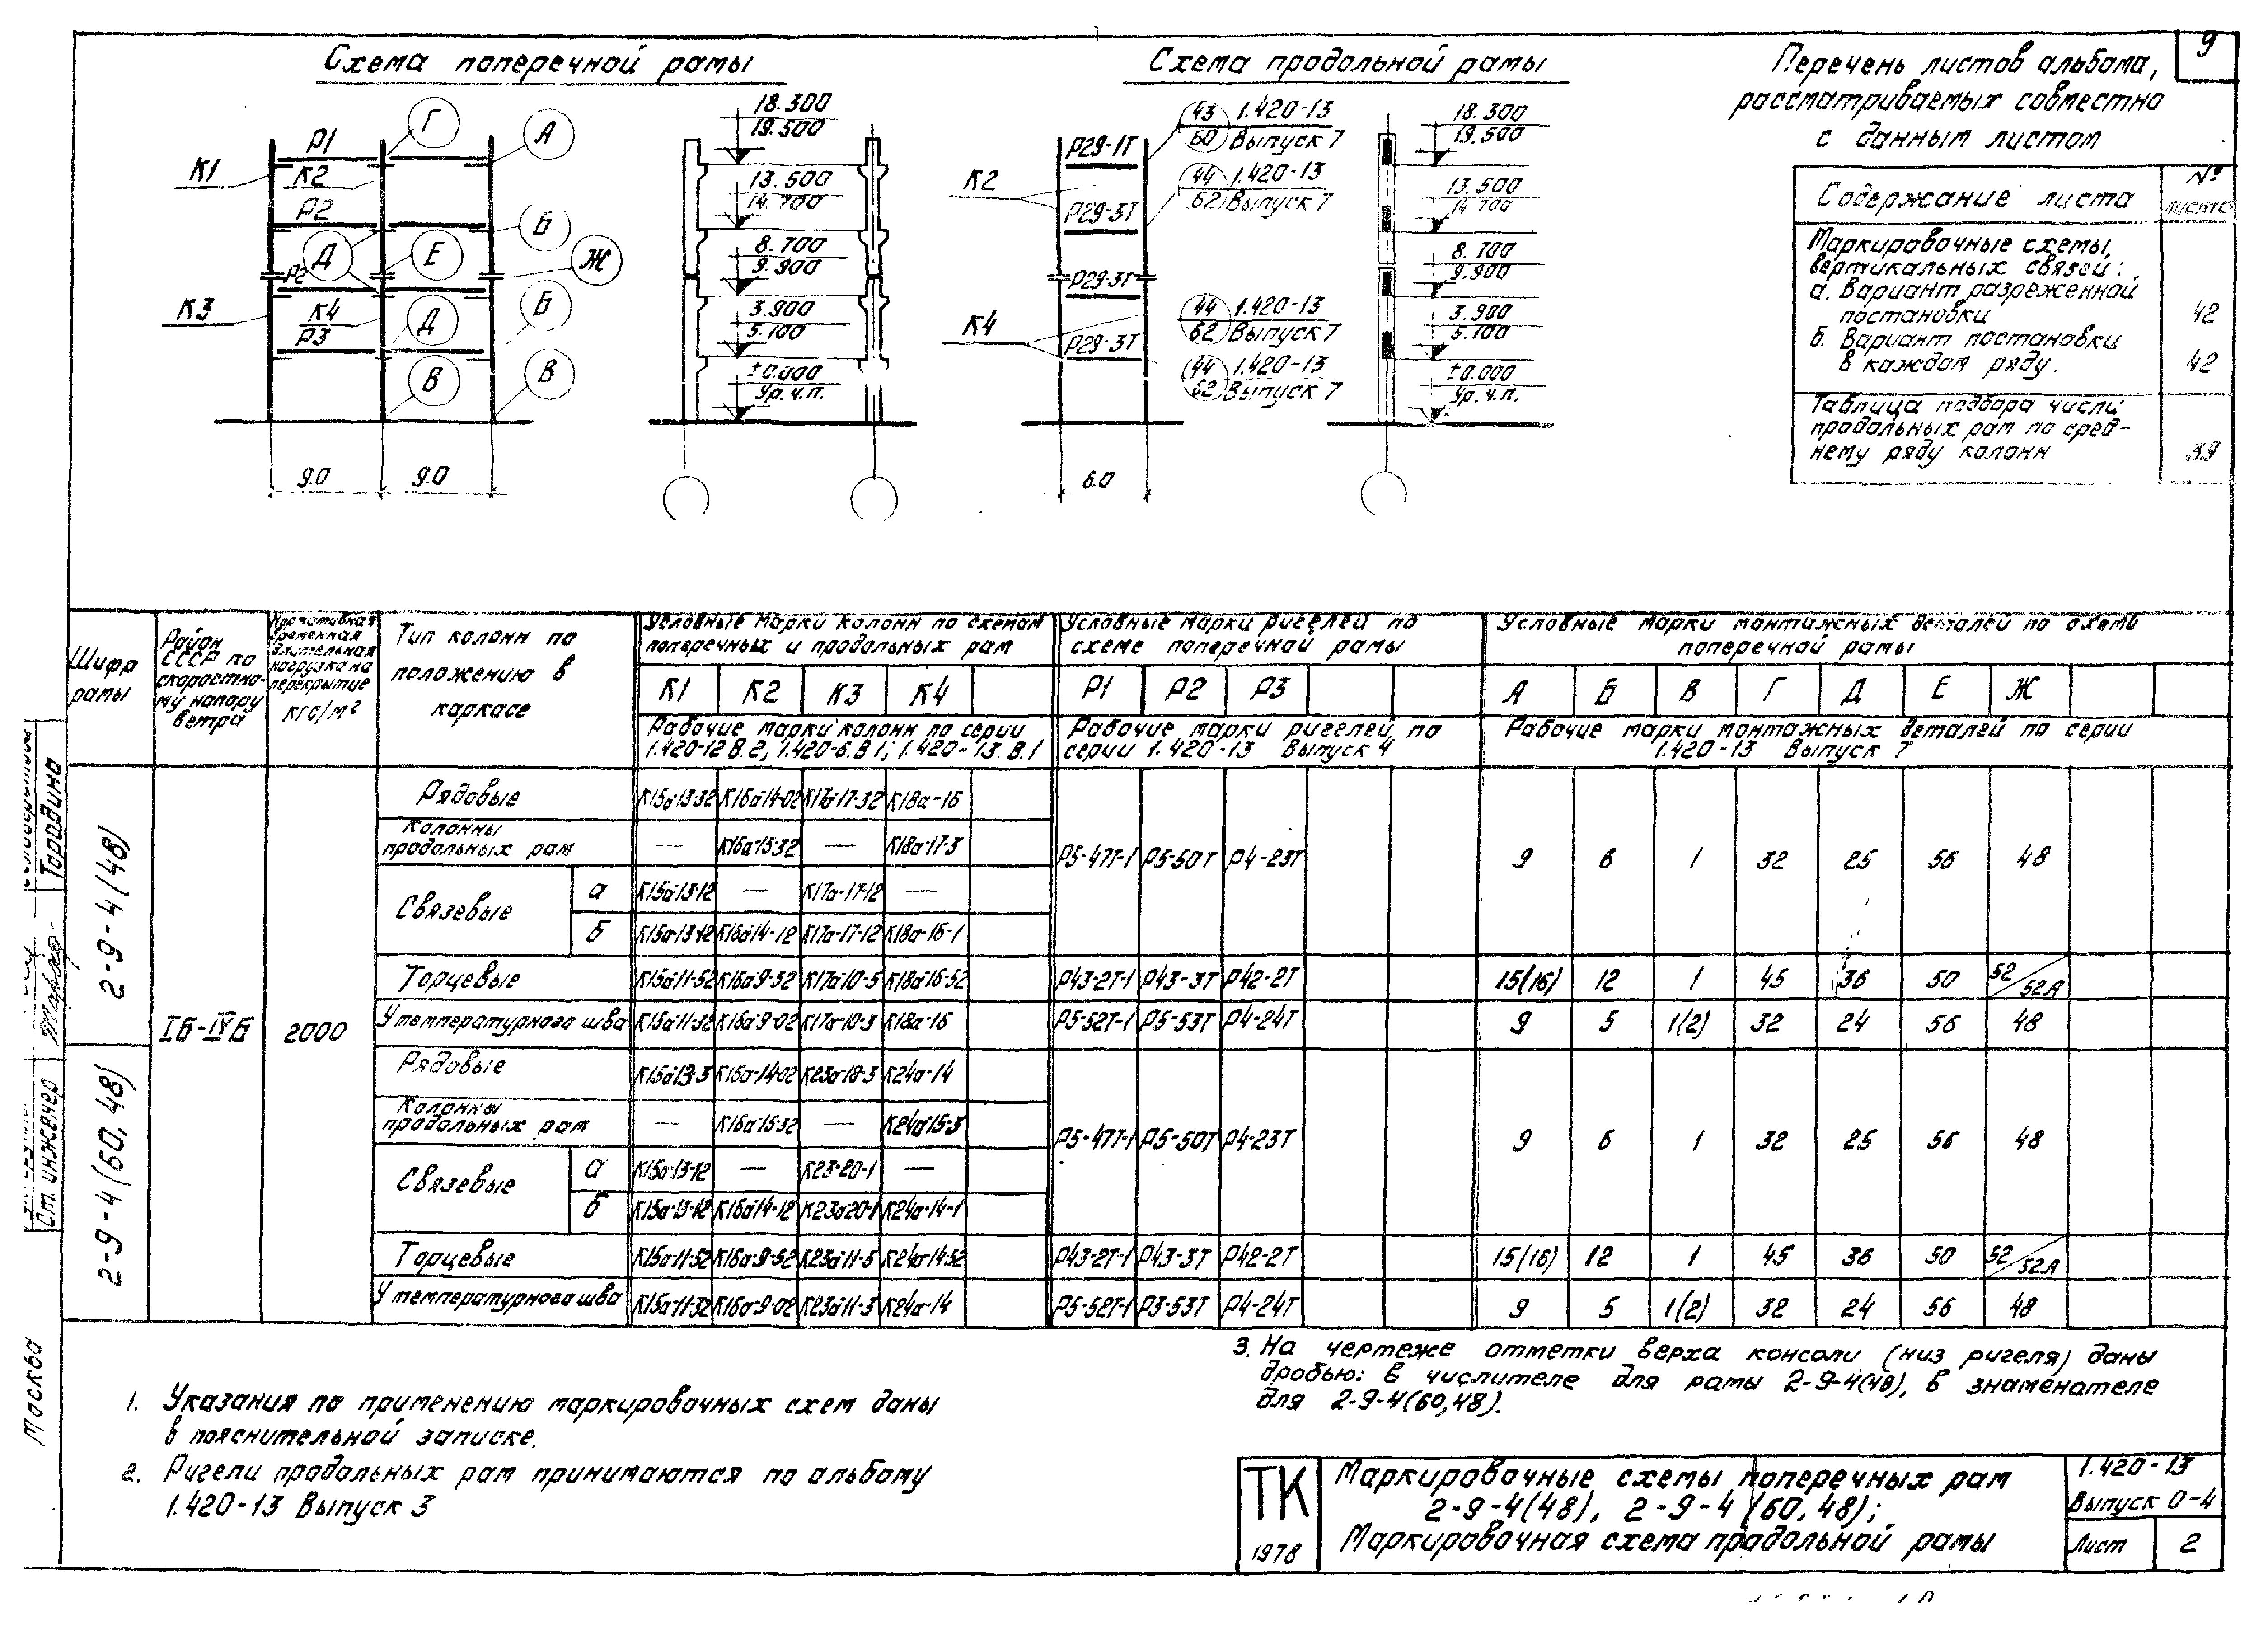 9
Схема поперечной рамы
К1
Р1
К2
Р2
Р2
К3
К4
Р3
Г
А
Д
Е
Б
Ж
Д
Б
В
В
9.0
9.0
18.300
19.500
13.500
14.700
8.700
9.900
3.900
5.100
±0.000
Ур. ч.п.
Схема продольной рамы
К2
К4
Р29-1Т
Р29-3Т
Р29-3Т
Р29-3Т
43 1.420-13
60 Выпуск 7
44 1.420-13
62 Выпуск 7
44 1.420-13
62 Выпуск 7
44 1.420-13
62 Выпуск 7
6.0
18.300
19.500
13.500
14.700
8.700
9.900
3.900
5.100
±0.000
Ур. ч.п.
Перечень листов альбома,
рассматриваемых совместно
с данным листом
Содержание листа № листа
Маркировочные схемы,
вертикальных связей:
а. Вариант разреженной
постановки 42
б. Вариант постановки
в каждом ряду. 42
Таблица подбора числа
продольных рам по сред-
нему ряду колонн 39
Шифр рамы
Район СССР по скоростно-му напору ветра
Нормативная временная длительная нагрузка на перекрытие кгс/м²
Тип колонн по положению в каркасе
Условные марки колонн по схемам поперечных и продольных рам
К1 К2 К3 К4
Рабочие марки колонн по серии 1.420-12 В.2, 1.420-6.В1; 1.420-13.В.1
Условные марки ригелей по схеме поперечной рамы
Р1 Р2 Р3
Рабочие марки ригелей по серии 1.420-13 Выпуск 4
Условные марки монтажных деталей по схеме поперечной рамы
А Б В Г Д Е Ж
Рабочие марки монтажных деталей по серии 1.420-13 Выпуск 7
2-9-4(48)
2-9-4(60,48)
Iб-IVБ
2000
Рядовые К15а-13-32 К16а-14-02 К17а-17-32 К18а-16
Колонны продольных рам — К16а-15-32 — К18а-17-3
Р5-47Т-1 Р5-50Т Р4-23Т 9 6 1 32 25 56 48
Связевые
а К15а-13-12 — К17а-17-12 —
б К15а-13-12 К16а-14-12 К17а-17-12 К18а-16-1
Торцевые К15а-11-52 К16а-9-52 К17а-10-5 К18а-16-52 Р43-2Т-1 Р43-3Т Р42-2Т 15(16) 12 1 45 36 50 52/52А
У температурного шва К15а-11-32 К16а-9-02 К17а-10-3 К18а-16 Р5-52Т-1 Р5-53Т Р4-24Т 9 5 1(2) 32 24 56 48
Рядовые К15а-13-3 К16а-14-02 К23а-18-3 К24а-14
Колонны продольных рам — К16а-15-32 — К24а-15-3
Р5-47Т-1 Р5-50Т Р4-23Т 9 6 1 32 25 56 48
Связевые
а К15а-13-12 — К23-20-1 —
б К15а-13-12 К16а-14-12 К23а-20-1 К24а-14-1
Торцевые К15а-11-52 К16а-9-52 К23а-11-5 К24а-14-52 Р43-2Т-1 Р43-3Т Р42-2Т 15(16) 12 1 45 36 50 52/52А
У температурного шва К15а-11-32 К16а-9-02 К23а-11-3 К24а-14 Р5-52Т-1 Р3-53Т Р4-24Т 9 5 1(2) 32 24 56 48
1. Указания по применению маркировочных схем даны
в пояснительной записке.
2. Ригели продольных рам принимаются по альбому
1.420-13 Выпуск 3
3. На чертеже отметки верха консоли (низ ригеля) даны
дробью: в числителе для рамы 2-9-4(48), в знаменателе
для 2-9-4(60,48).
ТК
1978
Маркировочные схемы поперечных рам
2-9-4(48), 2-9-4(60,48);
Маркировочная схема продольной рамы
1.420-13
Выпуск 0-4
Лист 2
Ст. инженер
Москва